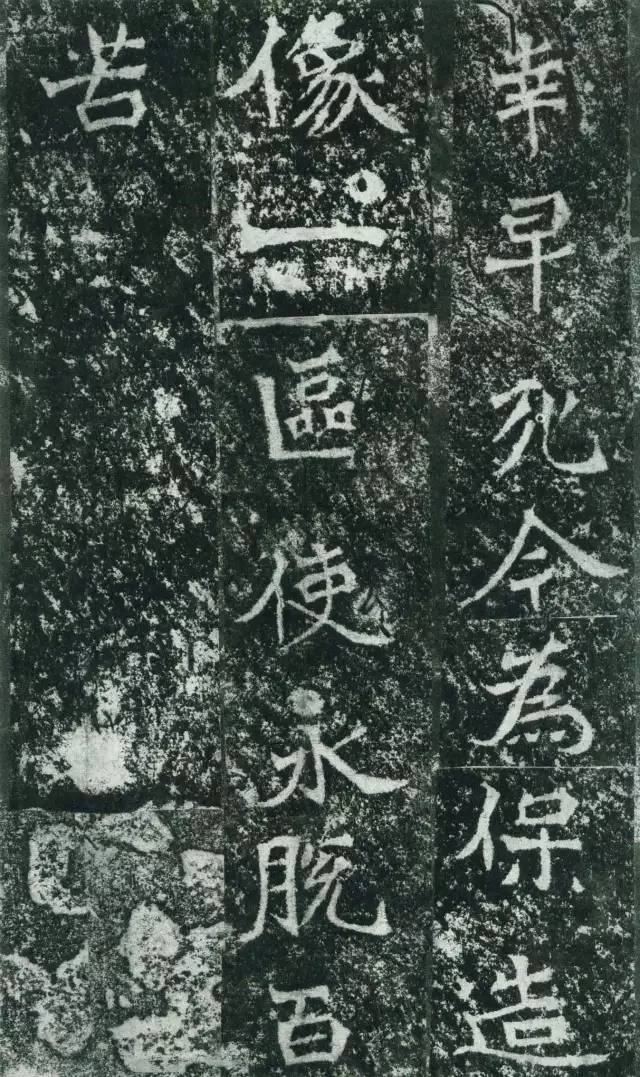 幸早死今為保造
像一區使永脫百
苦